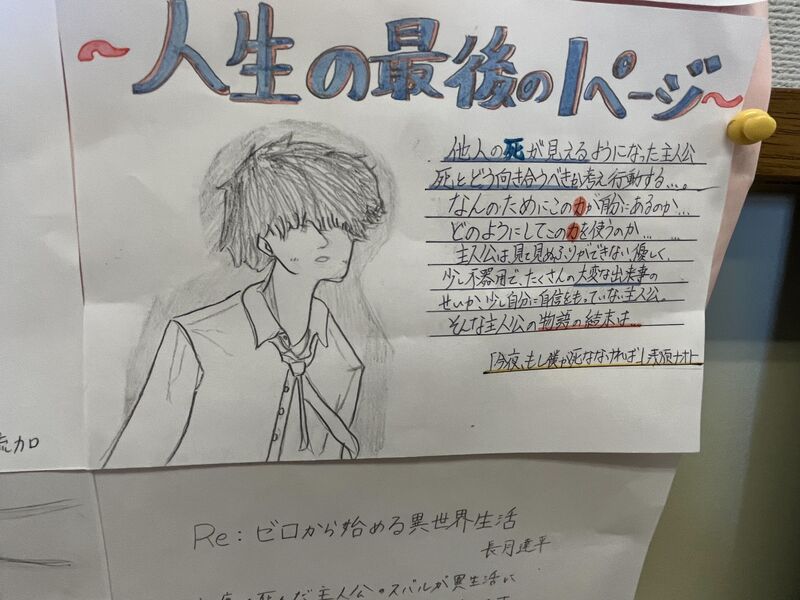 ~人生の最後の1ページ~
他人の死が見えるようになった主人公
死とどう向き合うべきか考え行動する…。
なんのためにこの力が自分にあるのか…
どのようにしてこの力を使うのか……
主人公は、見て見ぬふりができない優しく、
少し不器用で、たくさんの大変な出来事の
せいか、少し自分に自信をもっていない主人公。
そんな主人公の物語の結末は…
「今夜、もし僕が死ななければ」浅原ナオト
流カロ
Re:ゼロから始める異世界生活
長月達平
死んだ主人公のスバルが異生活に